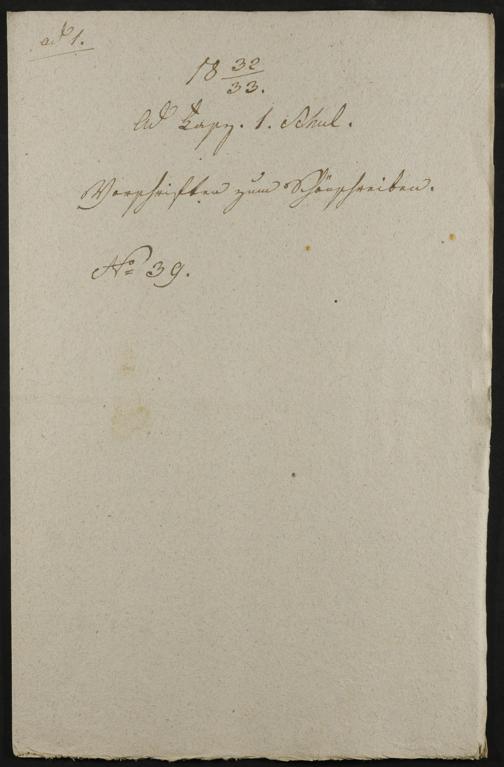 ad 1.
18 32/33.
Ad Kapz. 1. Schul.
Vorschriften zum Schönschreiben.
No 39.